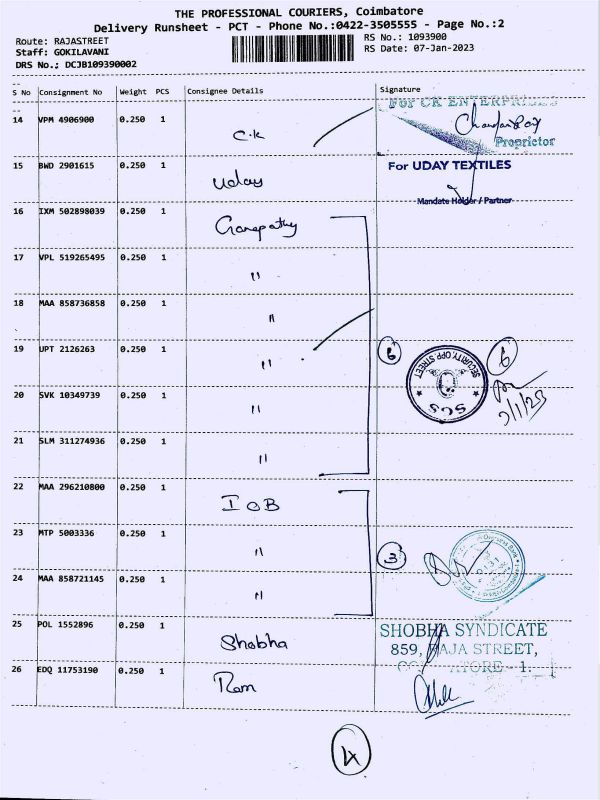 THE PROFESSIONAL COURIERS, Coimbatore
Delivery Runsheet - PCT - Phone No.:0422-3505555 - Page No.:2
Route: RAJASTREET
Staff: GOKILAVANI
DRS No.; DCJB109390002
RS No.: 1093900
RS Date: 07-Jan-2023
S No Consignment No Weight PCS Consignee Details Signature
For CK ENTERPRISES
14 VPM 4906900 0.250 1 C.K
Proprietor
15 BWD 2901615 0.250 1 Uday For UDAY TEXTILES
Mandate Holder / Partner
16 IXM 502898039 0.250 1 Ganapathy
17 VPL 519265495 0.250 1 "
18 MAA 858736858 0.250 1 "
19 UPT 2126263 0.250 1 " 6 SECURITY OPP STREET SCS 6
20 SVK 10349739 0.250 1 "
21 SLM 311274936 0.250 1 "
22 MAA 296210800 0.250 1 IOB
23 MTP 5003336 0.250 1 " 3
24 MAA 858721145 0.250 1 "
25 POL 1552896 0.250 1 Shobha SHOBHA SYNDICATE
859, RAJA STREET,
26 EDQ 11753190 0.250 1 Ram